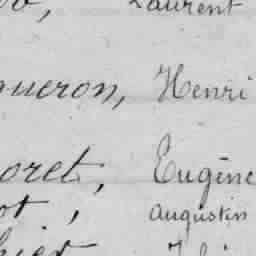 Laurent
queron, Henri
oret, Eugène
ot, Augustin
hier